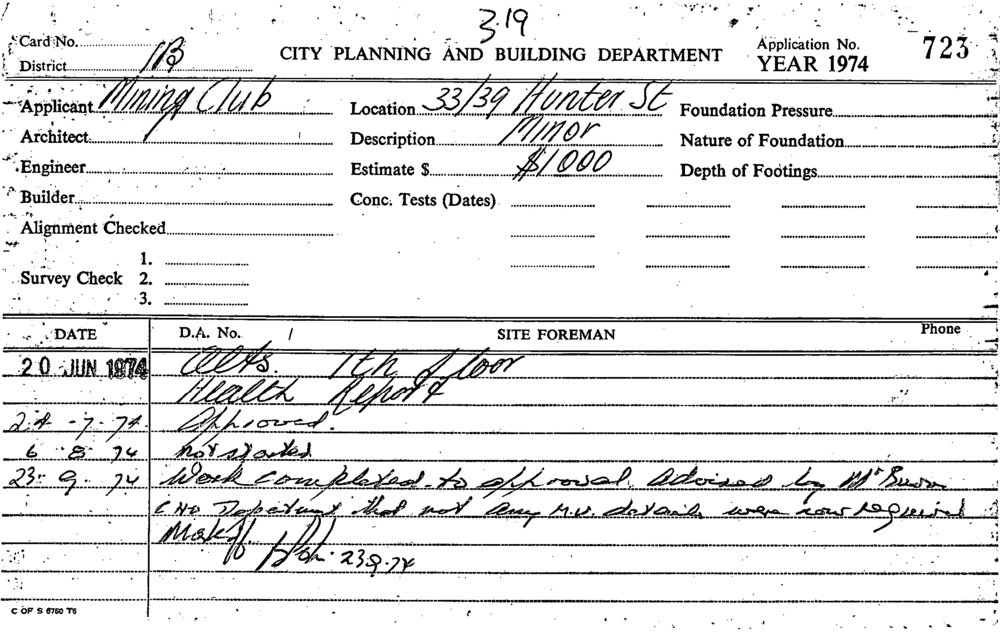 3.19
Card No.
District 1B
CITY PLANNING AND BUILDING DEPARTMENT
Application No. 723
YEAR 1974
Applicant Mining Club
Location 33/39 Hunter St
Foundation Pressure
Architect
Description Minor
Nature of Foundation
Engineer
Estimate $ $1000
Depth of Footings
Builder
Conc. Tests (Dates)
Alignment Checked
1.
Survey Check 2.
3.
DATE D.A. No. / SITE FOREMAN Phone
20 JUN 1974 Alts. 7th floor
Health Report
24-7-74. Approved.
6 8 74 Not started
23. 9. 74 Work completed to approval advised by Mr
that not any M.V. details were now required
23.9.74
C OF S 6750 T6